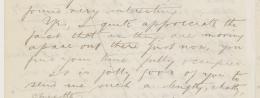 found very interesting.
Yes, I quite appreciate the
fact that as things are moving
apace out there just now, you
find your time fully occupied.
It is jolly good of you to
send me such a lengthy, chatty,